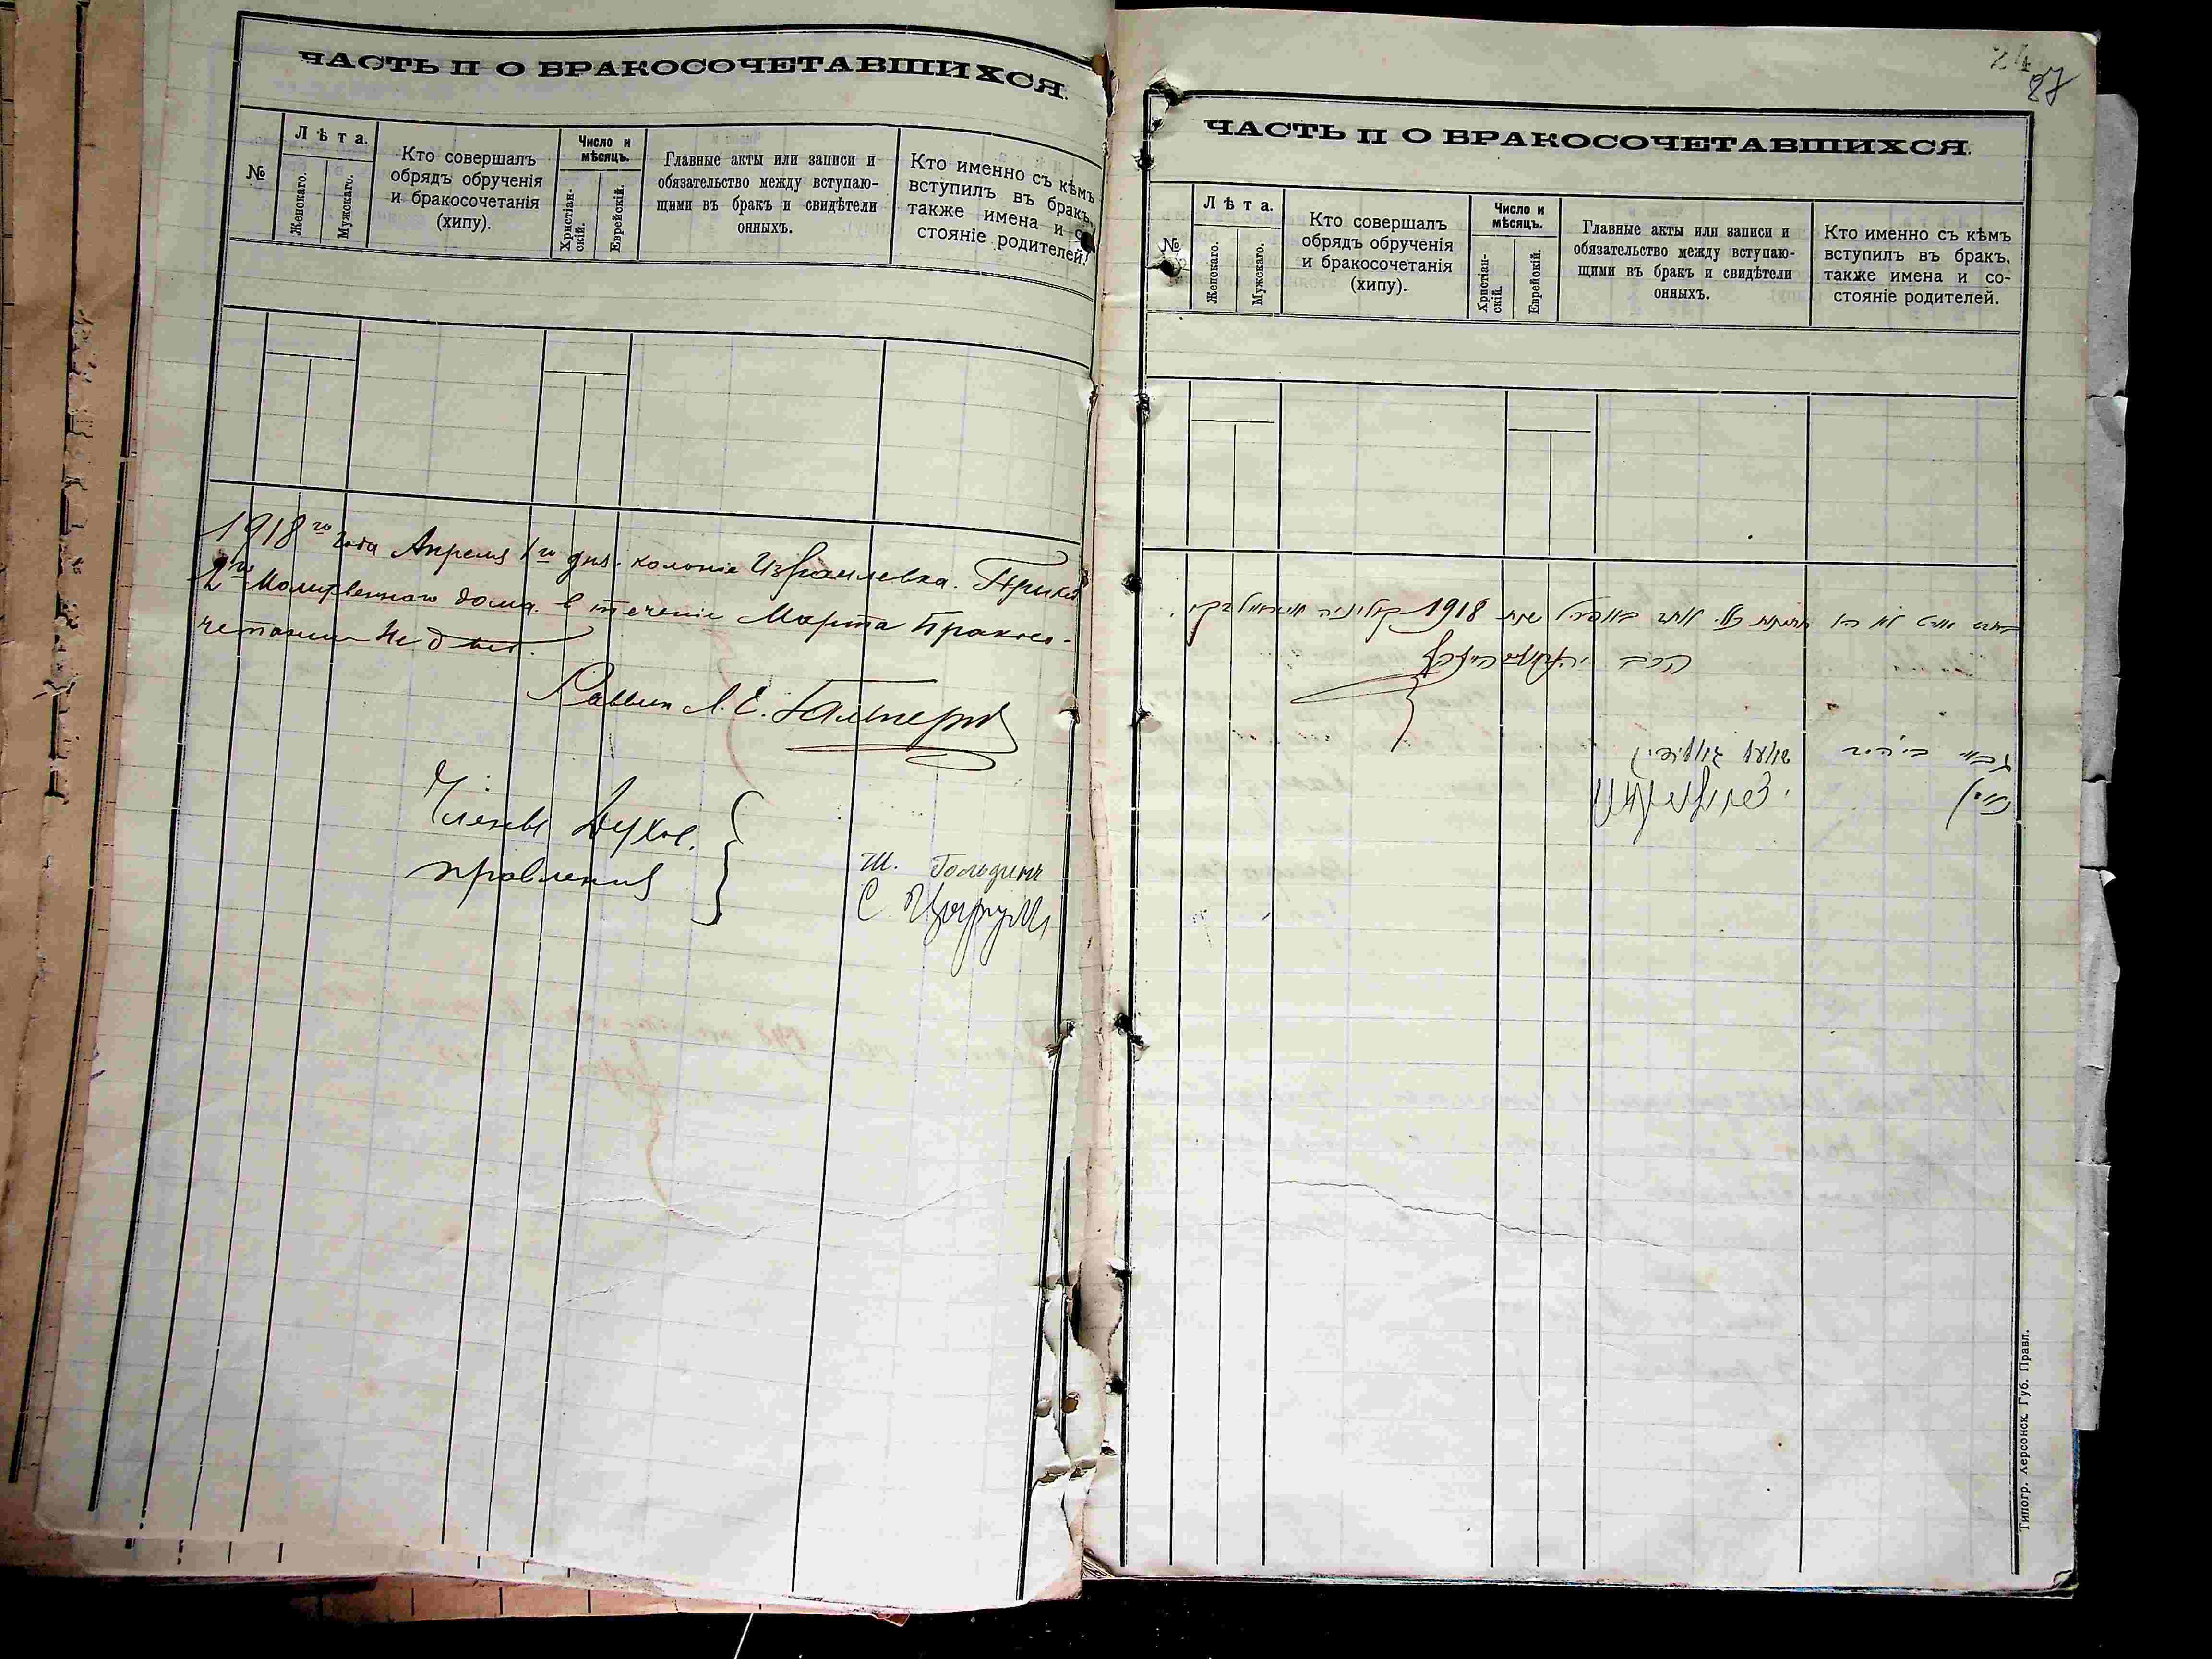 ЧАСТЬ II О БРАКОСОЧЕТАВШИХСЯ.
№
Лѣта.
Женскаго.
Мужскаго.
Кто совершалъ
обрядъ обрученія
и бракосочетанія
(хипу).
Число и
мѣсяцъ.
Христіан-
скій.
Еврейскій.
Главные акты или записи и
обязательство между вступаю-
щими въ бракъ и свидѣтели
онныхъ.
Кто именно съ кѣмъ
вступилъ въ бракъ,
также имена и со
стояніе родителей.
1918го года Апреля 1го дня. колонie Израилевка. При
2го Молитвеннаго дома. в теченіи Марта Бракосо-
четание не было.
Раввин Л. Е. Гальперн
Члены Духов.
правления
Ш. Гольдинъ
С.
24
27
ЧАСТЬ II О БРАКОСОЧЕТАВШИХСЯ.
№
Лѣта.
Женскаго.
Мужскаго.
Кто совершалъ
обрядъ обрученія
и бракосочетанія
(хипу).
Число и
мѣсяцъ.
Христіан-
скій.
Еврейскій.
Главные акты или записи и
обязательство между вступаю-
щими въ бракъ и свидѣтели
онныхъ.
Кто именно съ кѣмъ
вступилъ въ бракъ,
также имена и со-
стояніе родителей.
לא היו חתונות כלל. אחד באפריל שנת 1918 קאלוניה
הרב
גבאי
נאמן
Типогр. Херсонск. Губ. Правл.